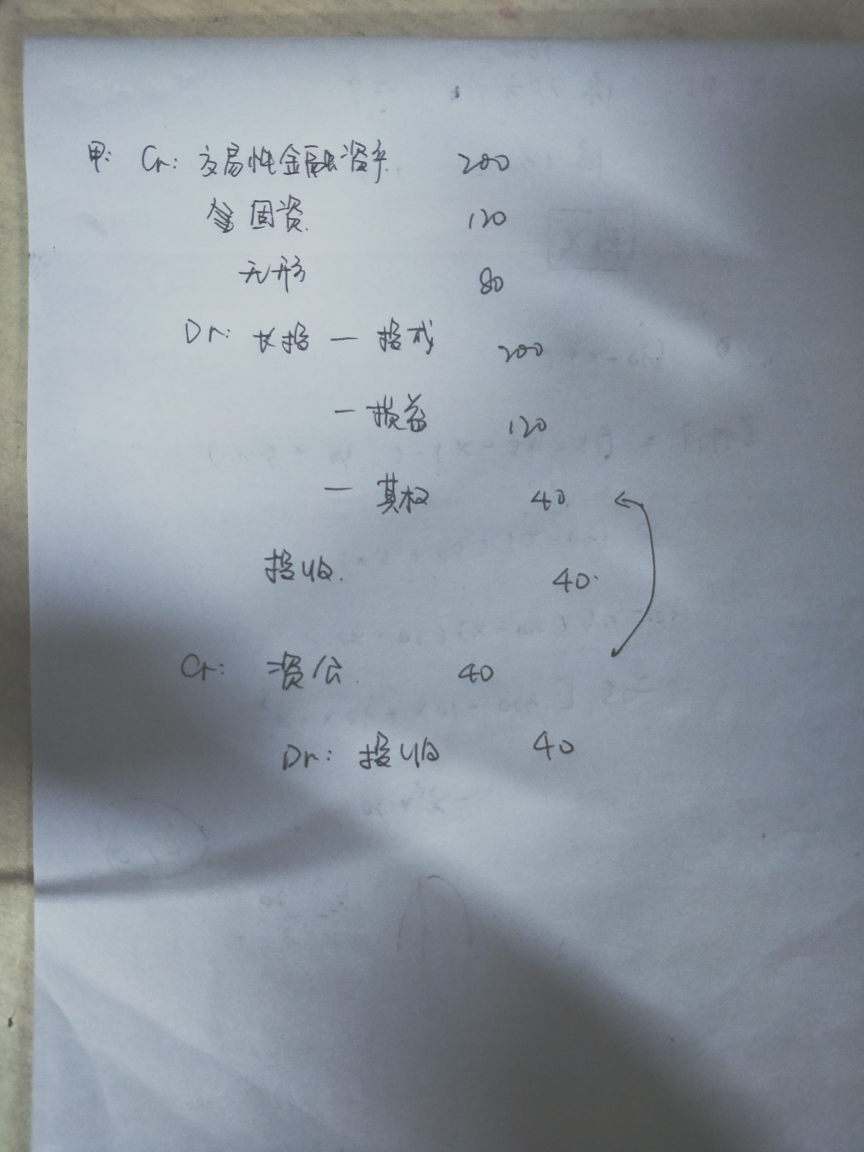 甲: Cr: 交易性金融资产 200
固资 120
无形 80
Dr: 长投 — 投成 200
— 损益 120
— 其权 40
投收 40
Cr: 资公 40
Dr: 投收 40